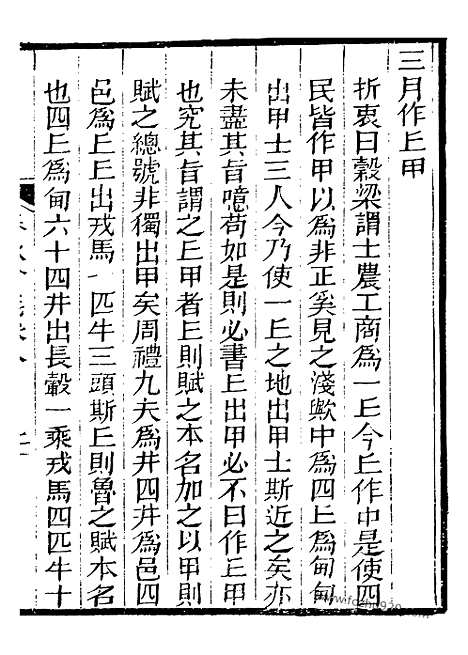 三月作丘甲
折衷曰穀梁謂士農工商為一丘今丘作中是使四
民皆作甲以為非正奚見之淺歟中為四丘為甸甸
出甲士三人今乃使一丘之地出甲士斯近之矣亦
未盡其旨噫苟如是則必書丘出甲必不曰作丘甲
也究其旨謂之丘甲者丘則賦之本名加之以甲則
賦之總號非獨出甲矣周禮九夫為井四井為邑四
邑為丘丘出戎馬一匹牛三頭斯丘則魯之賦本名
也四丘為甸六十四井出長轂一乘戎馬四匹牛十